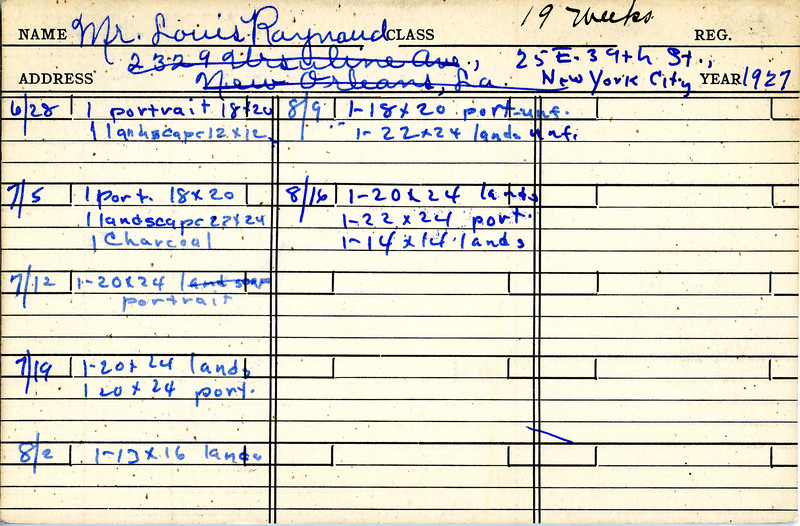 19 weeks
NAME Mr. Louis Raynaud CLASS REG.
2329 Ursuline Ave., 25 E. 39th St.,
ADDRESS New Orleans, La. New York City YEAR 1927
6/28 1 portrait 18x20
1 landscape 12x12
7/5 1 port. 18x20
1 landscape 22x24
1 Charcoal
7/12 1-20x24 landscape
portrait
7/19 1-20x24 lands
1 20x24 port.
8/2 1-13x16 lands
8/9 1-18x20 port-unf.
1-22x24 lands unf.
8/16 1-20x24 lands
1-22x24 port.
1-14x14 lands